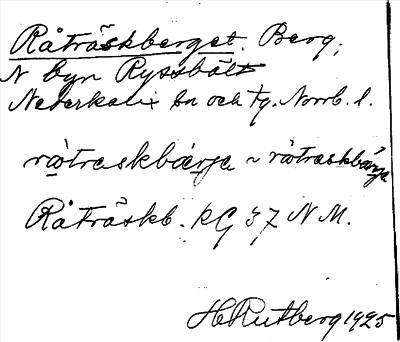 Råträskberget. Berg,
N byn Ryssbält
Nederkalix sn och tg. Norrb. l.
råtraskbærja ~ råtraskbærja
Råträskb. kG 37 N M.
H Rutberg 1925